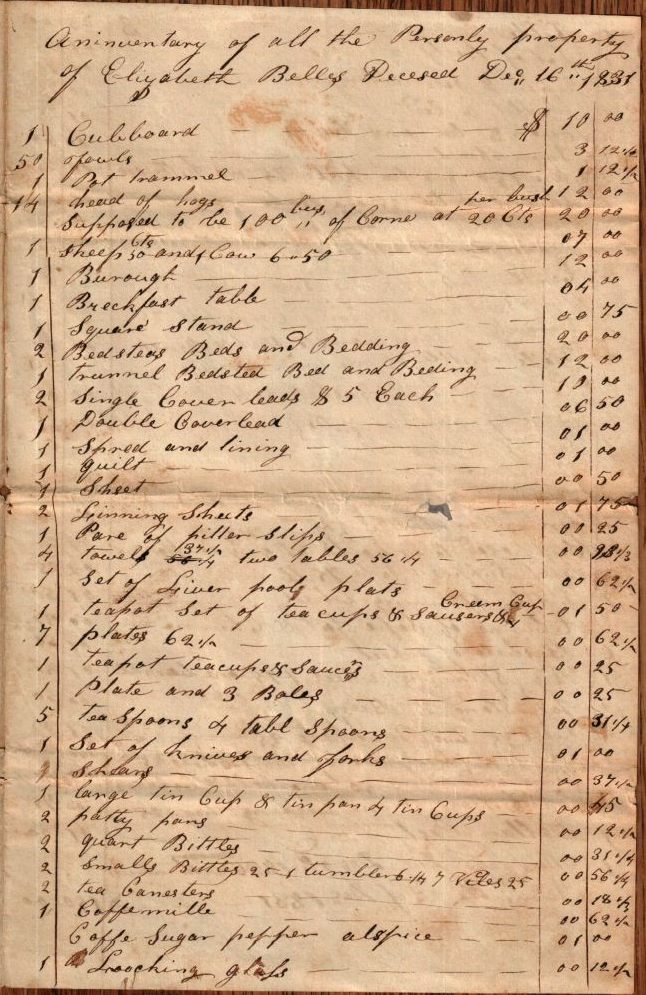 An inventary of all the Personly property
of Elizabeth Belles Decesed Dec 16th 1831
1 Cubboard $ 10 00
50 fowls 3 12 1/2
1 Pot trammel 1 12 1/2
14 head of hogs 12 00
Supposed to be 100 bus of Corne at 20 Cts per bush 20 00
1 Sheep 50 cts and 1 Cow 6-50 07 00
1 Burough 12 00
1 Breckfast table 04 00
1 Square Stand 00 75
2 Bedsteas Beds and Bedding 20 00
1 trunnel Bedsted Bed and Beding 12 00
2 Single Cover leads $ 5 Each 10 00
1 Double Coverlead 06 50
1 Spred and lining 01 00
1 quilt 01 00
1 Sheet 00 50
2 Linning Sheets 01 75
1 Pare of piller Slips 00 25
4 towels 37 1/2 two tables 56 1/4 00
1 Set of Liver pool plats 00 62 1/2
1 teapot Set of teacups & Sausers & Creem Cup 01 50
7 plates 62 1/2 00 62 1/2
1 teapot teacups & Sauces 00 25
1 Plate and 3 Boles 00 25
5 tea Spoons 4 tabl Spoons 00 31 1/4
1 Set of knives and forks 01 00
Shears 00 37 1/2
1 large tin Cup & tin pan 4 tin Cups 00
2 patty pans 00 12 1/2
2 quart Bittles 00 31 1/4
2 Smalls Bittles 25 1 tumbler 6 1/4 7 Viles 25 00 56 1/4
2 tea Canesters 00 18
1 Coffemille 00 62 1/2
Coffe Sugar pepper alspice 01 00
1 Loocking glass 00 12 1/2